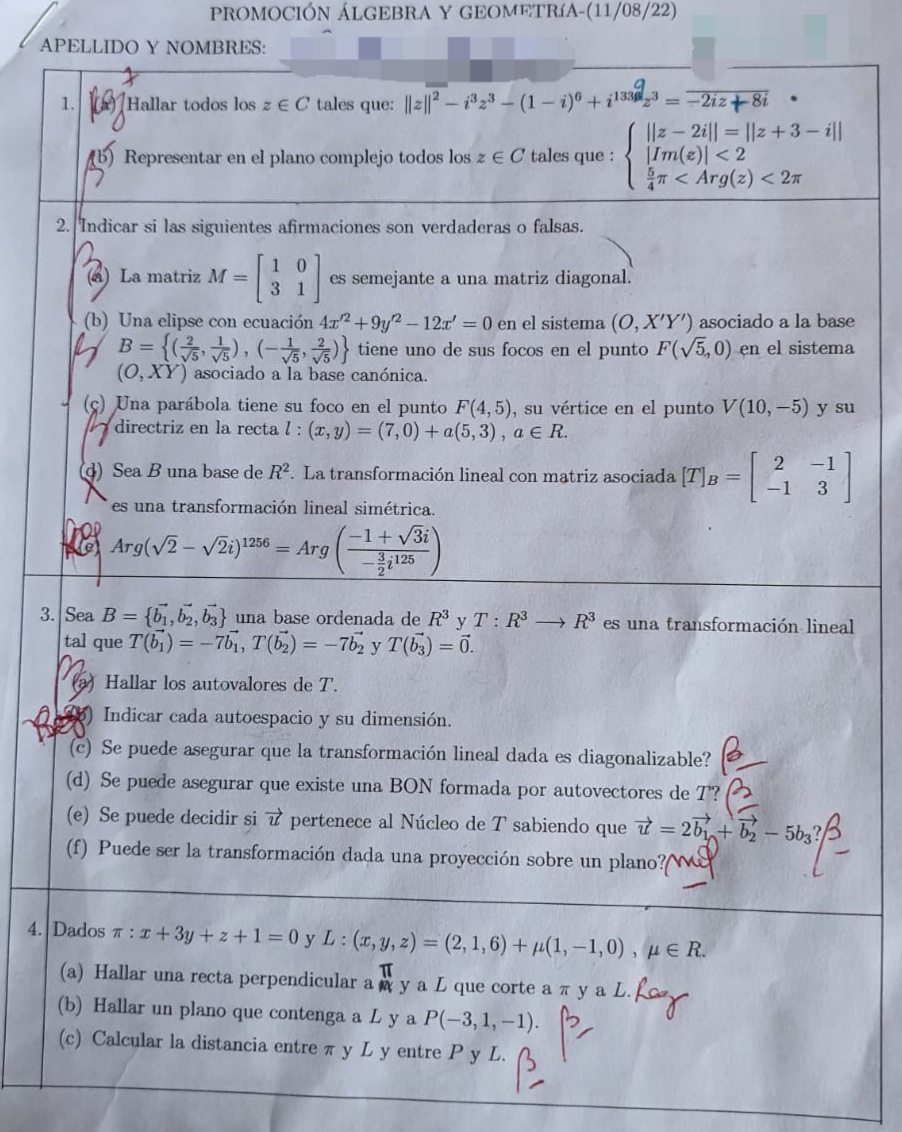 PROMOCIÓN ÁLGEBRA Y GEOMETRÍA-(11/08/22)
APELLIDO Y NOMBRES:
1. (a) Hallar todos los z ∈ C tales que: ||z||² − i³z³ − (1 − i)⁶ + i¹³³⁹z³ = \overline{−2iz + 8i}
(b) Representar en el plano complejo todos los z ∈ C tales que : { ||z − 2i|| = ||z + 3 − i||
|Im(z)| < 2
5/4 π < Arg(z) < 2π
2. Indicar si las siguientes afirmaciones son verdaderas o falsas.
(a) La matriz M = [1 0; 3 1] es semejante a una matriz diagonal.
(b) Una elipse con ecuación 4x'² + 9y'² − 12x' = 0 en el sistema (O, X'Y') asociado a la base
B = {(2/√5, 1/√5), (−1/√5, 2/√5)} tiene uno de sus focos en el punto F(√5, 0) en el sistema
(O, XY) asociado a la base canónica.
(c) Una parábola tiene su foco en el punto F(4, 5), su vértice en el punto V(10, −5) y su
directriz en la recta l : (x, y) = (7, 0) + a(5, 3) , a ∈ R.
(d) Sea B una base de R². La transformación lineal con matriz asociada [T]_B = [2 −1; −1 3]
es una transformación lineal simétrica.
(e) Arg(√2 − √2i)¹²⁵⁶ = Arg((−1 + √3i)/(−3/2 i¹²⁵))
3. Sea B = {b₁⃗, b₂⃗, b₃⃗} una base ordenada de R³ y T : R³ ⟶ R³ es una transformación lineal
tal que T(b₁⃗) = −7b₁⃗, T(b₂⃗) = −7b₂⃗ y T(b₃⃗) = 0⃗.
(a) Hallar los autovalores de T.
(b) Indicar cada autoespacio y su dimensión.
(c) Se puede asegurar que la transformación lineal dada es diagonalizable? B
(d) Se puede asegurar que existe una BON formada por autovectores de T? B
(e) Se puede decidir si u⃗ pertenece al Núcleo de T sabiendo que u⃗ = 2b₁⃗ + b₂⃗ − 5b₃? B
(f) Puede ser la transformación dada una proyección sobre un plano?
4. Dados π : x + 3y + z + 1 = 0 y L : (x, y, z) = (2, 1, 6) + μ(1, −1, 0) , μ ∈ R.
(a) Hallar una recta perpendicular a π y a L que corte a π y a L. Reg
(b) Hallar un plano que contenga a L y a P(−3, 1, −1). B
(c) Calcular la distancia entre π y L y entre P y L. B